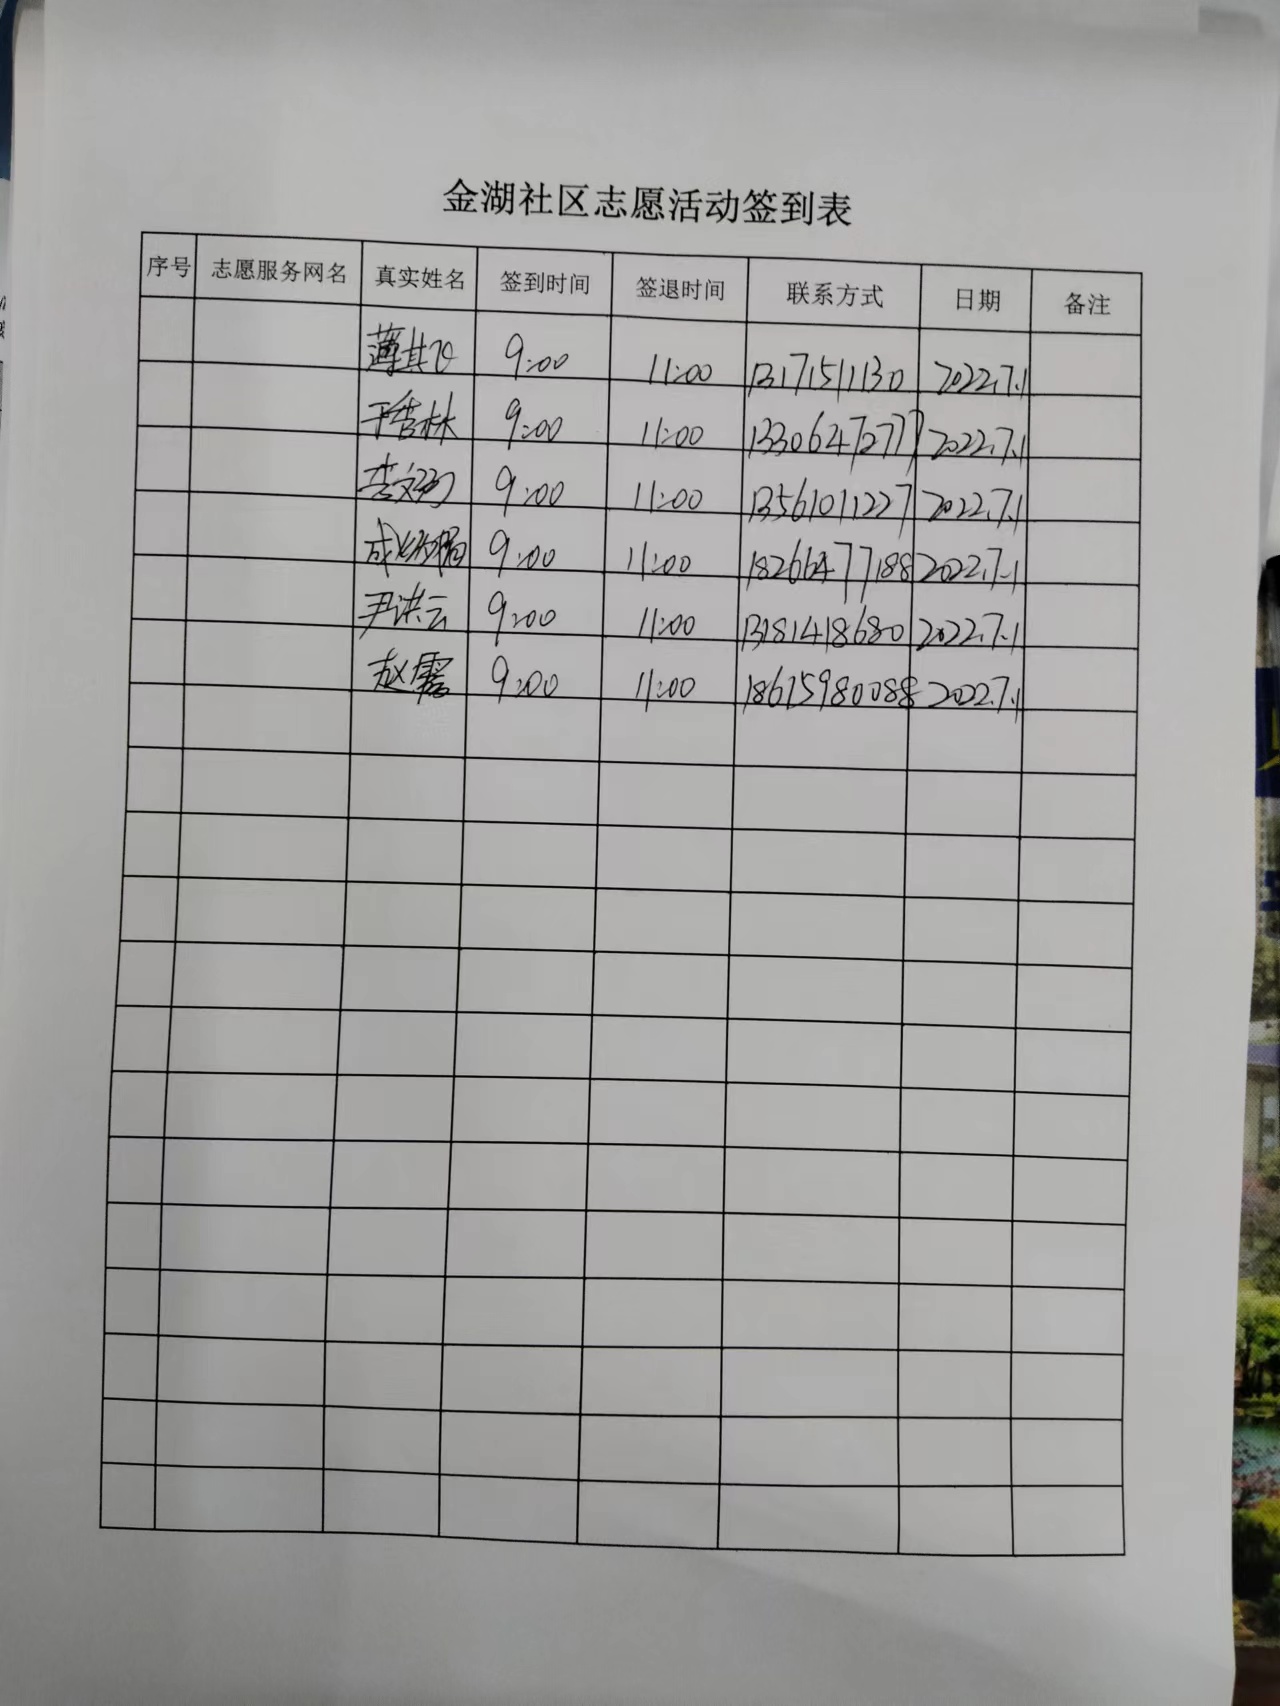 金湖社区志愿活动签到表
序号 志愿服务网名 真实姓名 签到时间 签退时间 联系方式 日期 备注
薄其 9:00 11:00 13171511130 2022.7.1
于 林 9:00 11:00 13306472777 2022.7.1
李文 9:00 11:00 13561011227 2022.7.1
成 9:00 11:00 18266477188 2022.7.1
尹洪云 9:00 11:00 13181418680 2022.7.1
赵霞 9:00 11:00 18615980088 2022.7.1